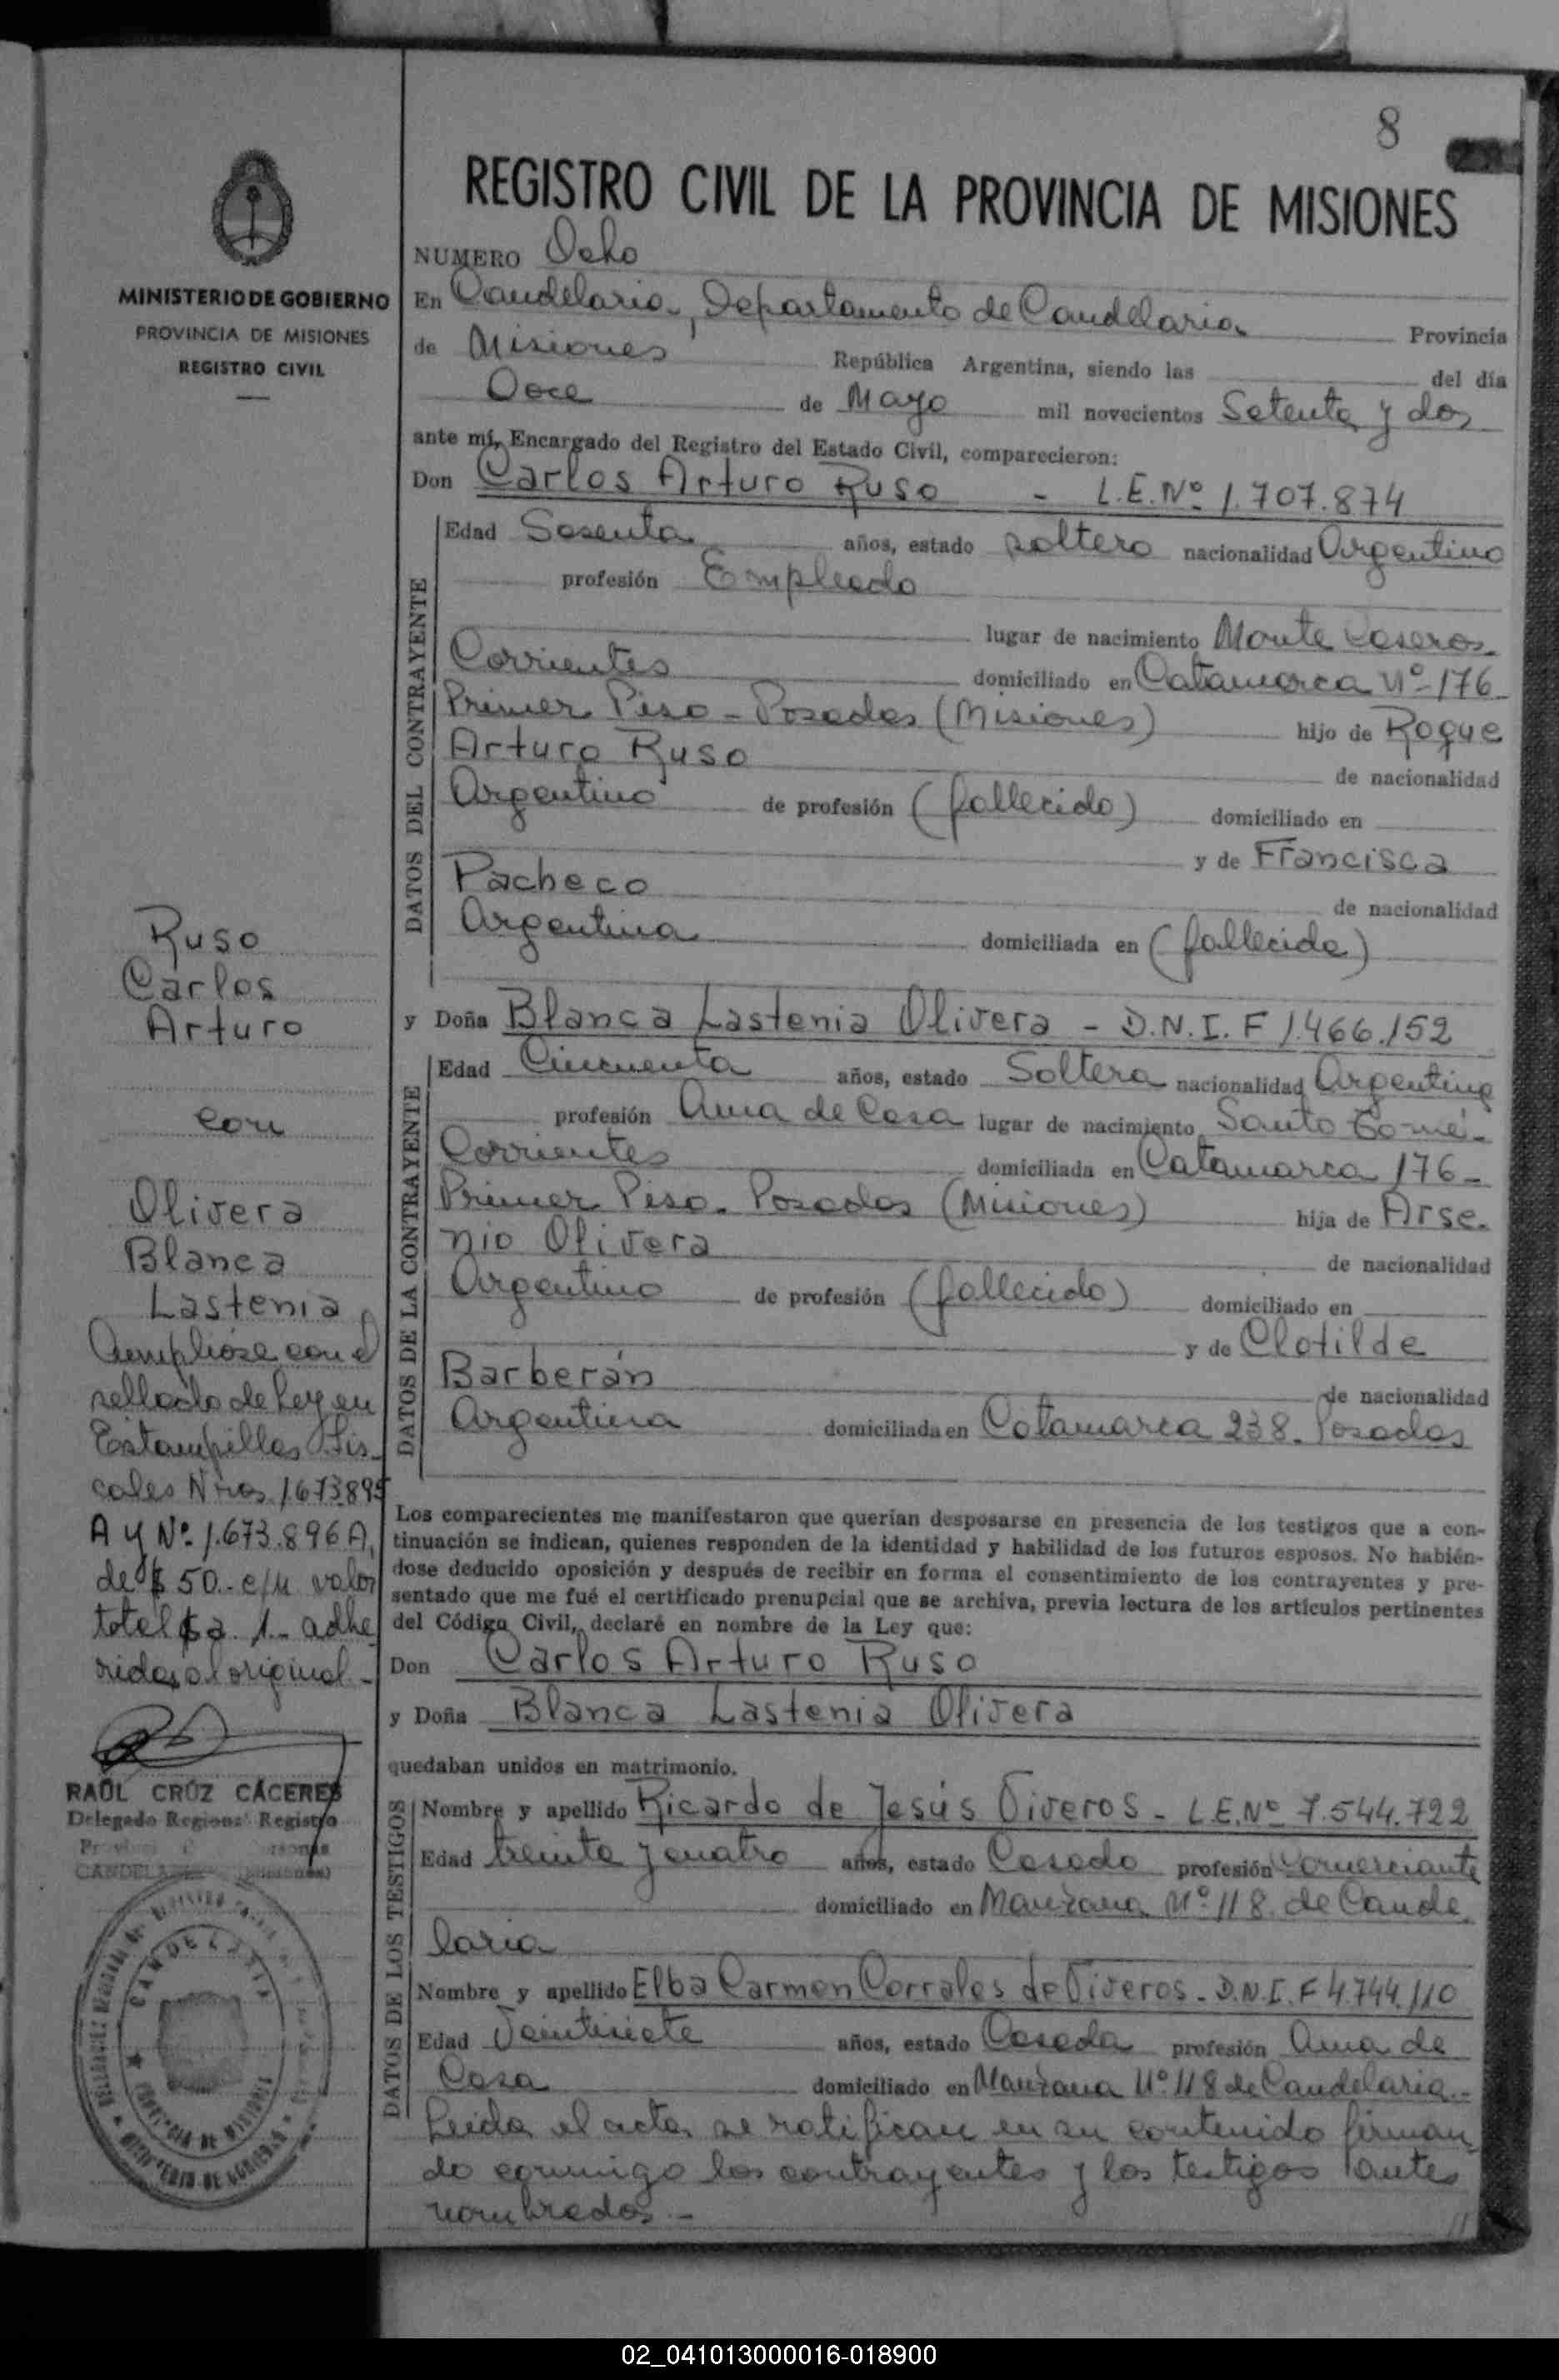 8
REGISTRO CIVIL DE LA PROVINCIA DE MISIONES
MINISTERIO DE GOBIERNO
PROVINCIA DE MISIONES
REGISTRO CIVIL
NUMERO Ocho
En Candelaria, Departamento de Candelaria Provincia
de Misiones República Argentina, siendo las del día
Doce de Mayo mil novecientos Setenta y dos
ante mí, Encargado del Registro del Estado Civil, comparecieron:
Don Carlos Arturo Ruso - L.E.Nº 1.707.874
DATOS DEL CONTRAYENTE
Edad Sesenta años, estado soltero nacionalidad Argentino
profesión Empleado
lugar de nacimiento Monte Caseros
Corrientes domiciliado en Catamarca Nº 176
Primer Piso - Posadas (Misiones) hijo de Roque
Arturo Ruso de nacionalidad
Argentino de profesión (fallecido) domiciliado en
y de Francisca
Pacheco de nacionalidad
Argentina domiciliada en (fallecida)
y Doña Blanca Lastenia Olivera - D.N.I. F 1.466.152
DATOS DE LA CONTRAYENTE
Edad Cincuenta años, estado Soltera nacionalidad Argentina
profesión Ama de Casa lugar de nacimiento Santo Tomé-
Corrientes domiciliada en Catamarca 176-
Primer Piso. Posadas (Misiones) hija de Arse-
nio Olivera de nacionalidad
Argentino de profesión (fallecido) domiciliado en
y de Clotilde
Barberán de nacionalidad
Argentina domiciliada en Catamarca 238. Posadas
Los comparecientes me manifestaron que querían desposarse en presencia de los testigos que a con-
tinuación se indican, quienes responden de la identidad y habilidad de los futuros esposos. No habién-
dose deducido oposición y después de recibir en forma el consentimiento de los contrayentes y pre-
sentado que me fué el certificado prenupcial que se archiva, previa lectura de los artículos pertinentes
del Código Civil, declaré en nombre de la Ley que:
Don Carlos Arturo Ruso
y Doña Blanca Lastenia Olivera
quedaban unidos en matrimonio.
DATOS DE LOS TESTIGOS
Nombre y apellido Ricardo de Jesús Viveros - L.E.Nº 7.544.722
Edad treinta y cuatro años, estado Casado profesión Comerciante
domiciliado en Manzana Nº 118 de Cande-
laria
Nombre y apellido Elba Carmen Corrales de Viveros - D.N.I. F 4.744.110
Edad Veintisiete años, estado Casada profesión Ama de
Casa domiciliado en Manzana Nº 118 de Candelaria.-
Leída el acta, se ratifican en su contenido firman-
do conmigo los contrayentes y los testigos antes
nombrados.-
Ruso
Carlos
Arturo
con
Olivera
Blanca
Lastenia
Cumplióse con el
sellado de Ley en
Estampillas Fis-
cales Nros 1.673.895
A y Nº 1.673.896 A,
de $ 50.- c/u valor
total $a 1.- adhe
ridas al original.-
RAÚL CRUZ CÁCERES
Delegado Regional Registro
CANDELARIA (Misiones)
CANDELARIA
PROVINCIA DE MISIONES
MINISTERIO DE GOBIERNO
02_041013000016-018900